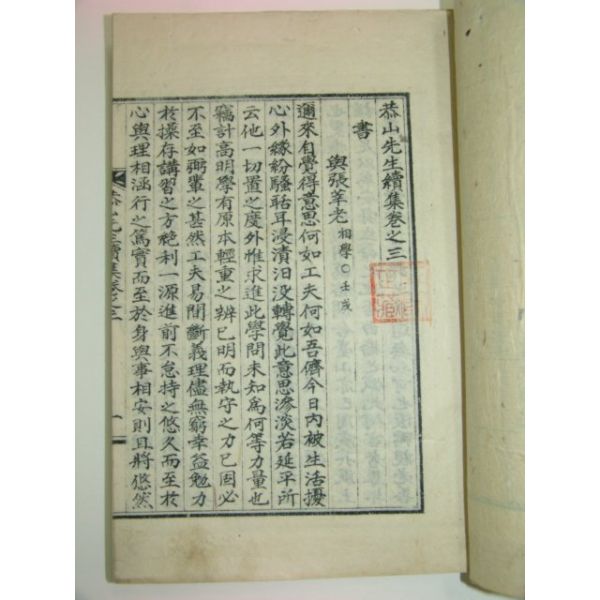 恭山先生續集卷之三
書
與張莘老 相學○壬戌
邇來自覺得意思何如工夫何如吾儕今日內被生活擾
心外緣紛騷聒耳浸漬汨没轉覺此意思滲淡若延平所
云他一切置之度外惟求進此學問未知爲何等力量也
竊計高明學有原本輕重之辨已明而執守之力已固必
不至如弼輩之甚然工夫易間斷義理儘無窮幸益勉力
於操存講習之方絶利一源進前不怠持之悠久而至於
心與理相涵行之篤實而至於身與事相安則且將悠然